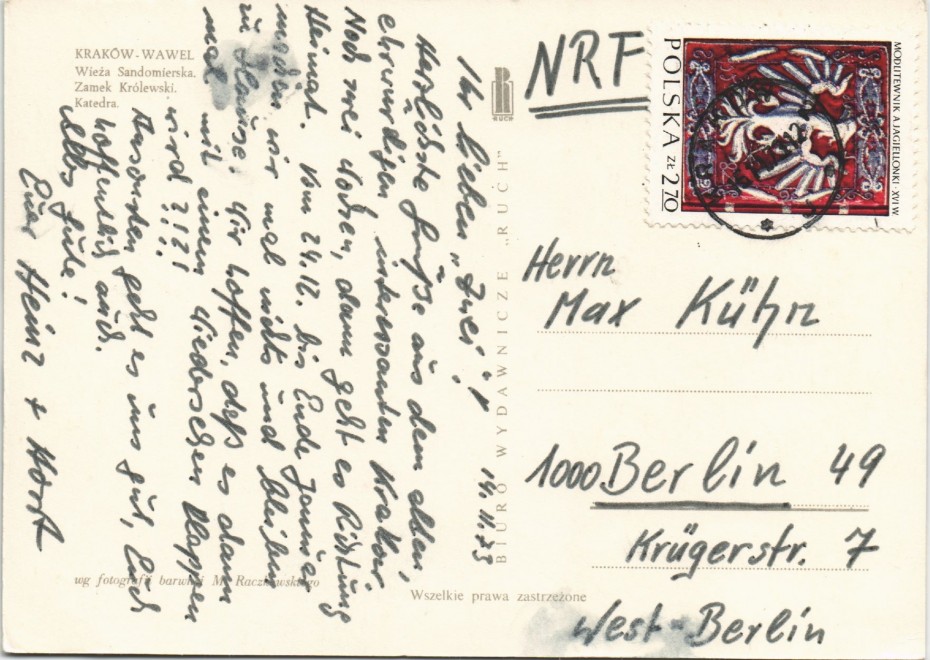 KRAKÓW - WAWEL
Wieża Sandomierska.
Zamek Królewski.
Katedra.
14.11.73
Ihr lieben „Zwei"!
Herzlichste Grüße aus dem alten
ehrwürdigen interessanten Krakow
Noch zwei Wochen, dann geht es Richtung
Heimat. Vom 24.12. bis Ende Januar
machen wir mal nichts und bleiben
zu Hause. Wir hoffen, daß es dann
mal mit einem Wiedersehen klappen
wird ?!?!
Ansonsten geht es uns gut, Euch
hoffentlich auch.
Alles Gute!
Eure Heinz + Horst
wg fotografii barwnej M. Raczkowskiego
RUCH
BIURO WYDAWNICZE „RUCH"
Wszelkie prawa zastrzeżone
NRF
POLSKA ZŁ 2.70
MODLITEWNIK A JAGIELLONKI · XVI W
Herrn
Max Kühn
1000 Berlin 49
Krügerstr. 7
West-Berlin